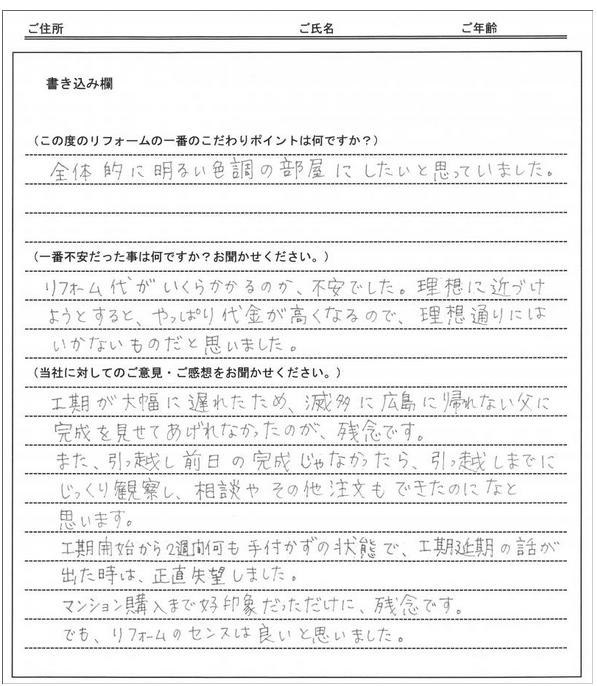 ご住所 ご氏名 ご年齢
書き込み欄
（この度のリフォームの一番のこだわりポイントは何ですか？）
全体的に明るい色調の部屋にしたいと思っていました。
（一番不安だった事は何ですか？お聞かせください。）
リフォーム代がいくらかかるのか、不安でした。理想に近づけ
ようとすると、やっぱり代金が高くなるので、理想通りには
いかないものだと思いました。
（当社に対してのご意見・ご感想をお聞かせください。）
工期が大幅に遅れたため、滅多に広島に帰れない父に
完成を見せてあげれなかったのが、残念です。
また、引っ越し前日の完成じゃなかったら、引っ越しまでに
じっくり観察し、相談やその他注文もできたのになと
思います。
工期開始から2週間何も手付かずの状態で、工期延期の話が
出た時は、正直失望しました。
マンション購入まで好印象だっただけに、残念です。
でも、リフォームのセンスは良いと思いました。